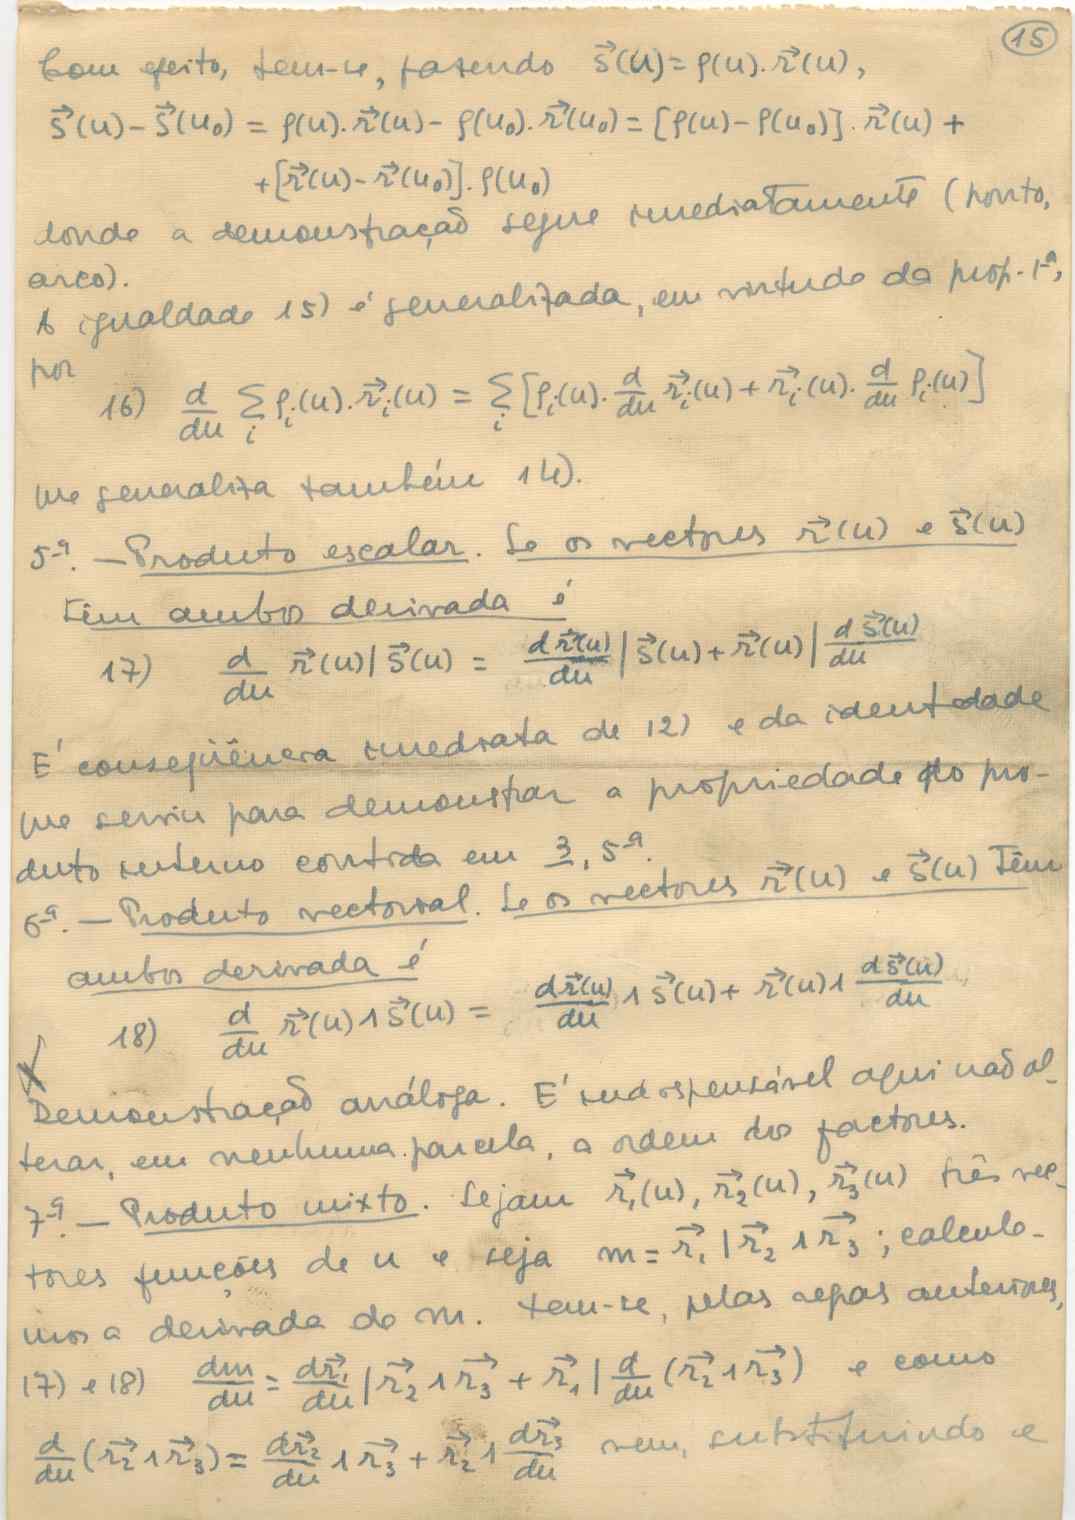 15
Com efeito, tem-se, fazendo s⃗(u) = ρ(u). r⃗(u),
s⃗(u) - s⃗(u₀) = ρ(u). r⃗(u) - ρ(u₀). r⃗(u₀) = [ρ(u) - ρ(u₀)]. r⃗(u) +
+ [r⃗(u) - r⃗(u₀)]. ρ(u₀)
donde a demonstração segue imediatamente (ponto,
arco).
A igualdade 15) é generalizada, em virtude da prop. 1ª,
por
16) d/du Σᵢ ρᵢ(u). r⃗ᵢ(u) = Σᵢ [ρᵢ(u). d/du r⃗ᵢ(u) + r⃗ᵢ(u). d/du ρᵢ(u)]
que generaliza também 14).
5ª. — Produto escalar. Se os vectores r⃗(u) e s⃗(u)
têm ambos derivada é
17) d/du r⃗(u) | s⃗(u) = dr⃗(u)/du | s⃗(u) + r⃗(u) | ds⃗(u)/du
É conseqüência imediata de 12) e da identidade
que serviu para demonstrar a propriedade do pro-
duto interno contida em 3, 5ª.
6ª. — Produto vectorial. Se os vectores r⃗(u) e s⃗(u) têm
ambos derivada é
18) d/du r⃗(u) ∧ s⃗(u) = dr⃗(u)/du ∧ s⃗(u) + r⃗(u) ∧ ds⃗(u)/du
Demonstração análoga. É indispensável aqui não al-
terar, em nenhuma parcela, a ordem dos factores.
7ª. — Produto mixto. Sejam r⃗₁(u), r⃗₂(u), r⃗₃(u) três vec-
tores funções de u e seja m = r⃗₁ | r⃗₂ ∧ r⃗₃ ; calcule-
mos a derivada de m. Tem-se, pelas regras anteriores,
17) e 18) dm/du = dr⃗₁/du | r⃗₂ ∧ r⃗₃ + r⃗₁ | d/du (r⃗₂ ∧ r⃗₃) e como
d/du (r⃗₂ ∧ r⃗₃) = dr⃗₂/du ∧ r⃗₃ + r⃗₂ ∧ dr⃗₃/du vem, substituindo e